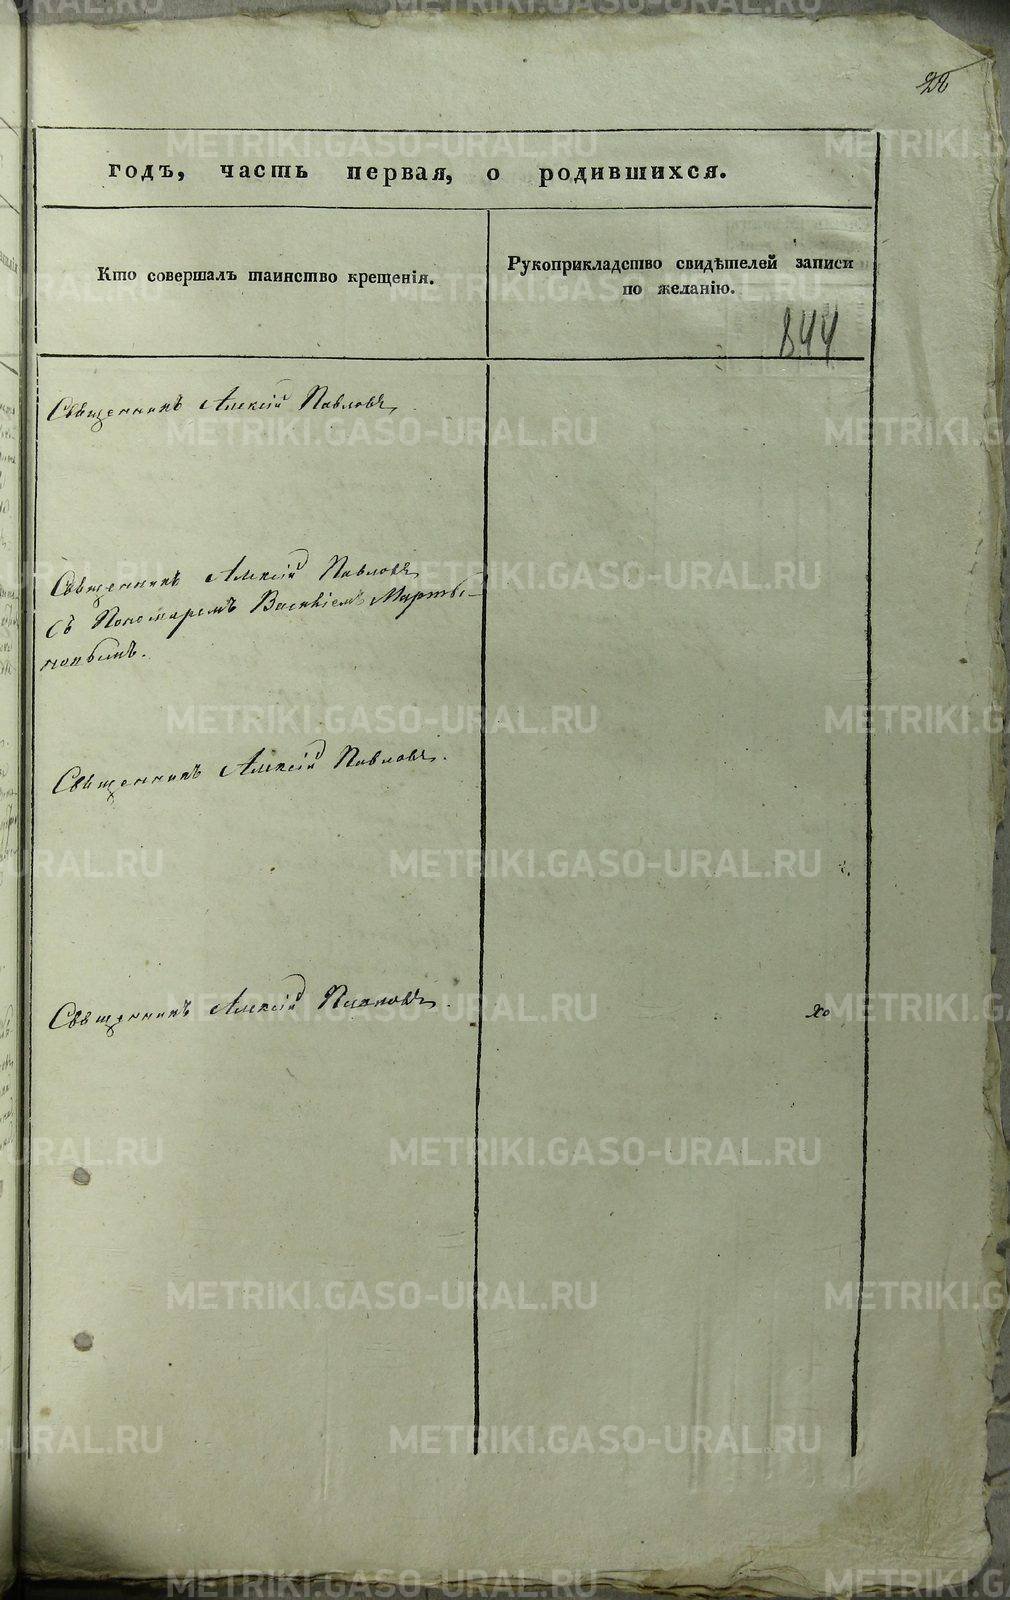 годъ, часть первая, о родившихся.
Кто совершалъ таинство крещенія.
Рукоприкладство свидѣтелей записи
по желанію.
844
Священникъ Алексій Павловъ,
Священникъ Алексій Павловъ
съ Пономаремъ Василіемъ Марты-
новымъ.
Священникъ Алексій Павловъ.
Священникъ Алексій Павловъ.
METRIKI.GASO-URAL.RU